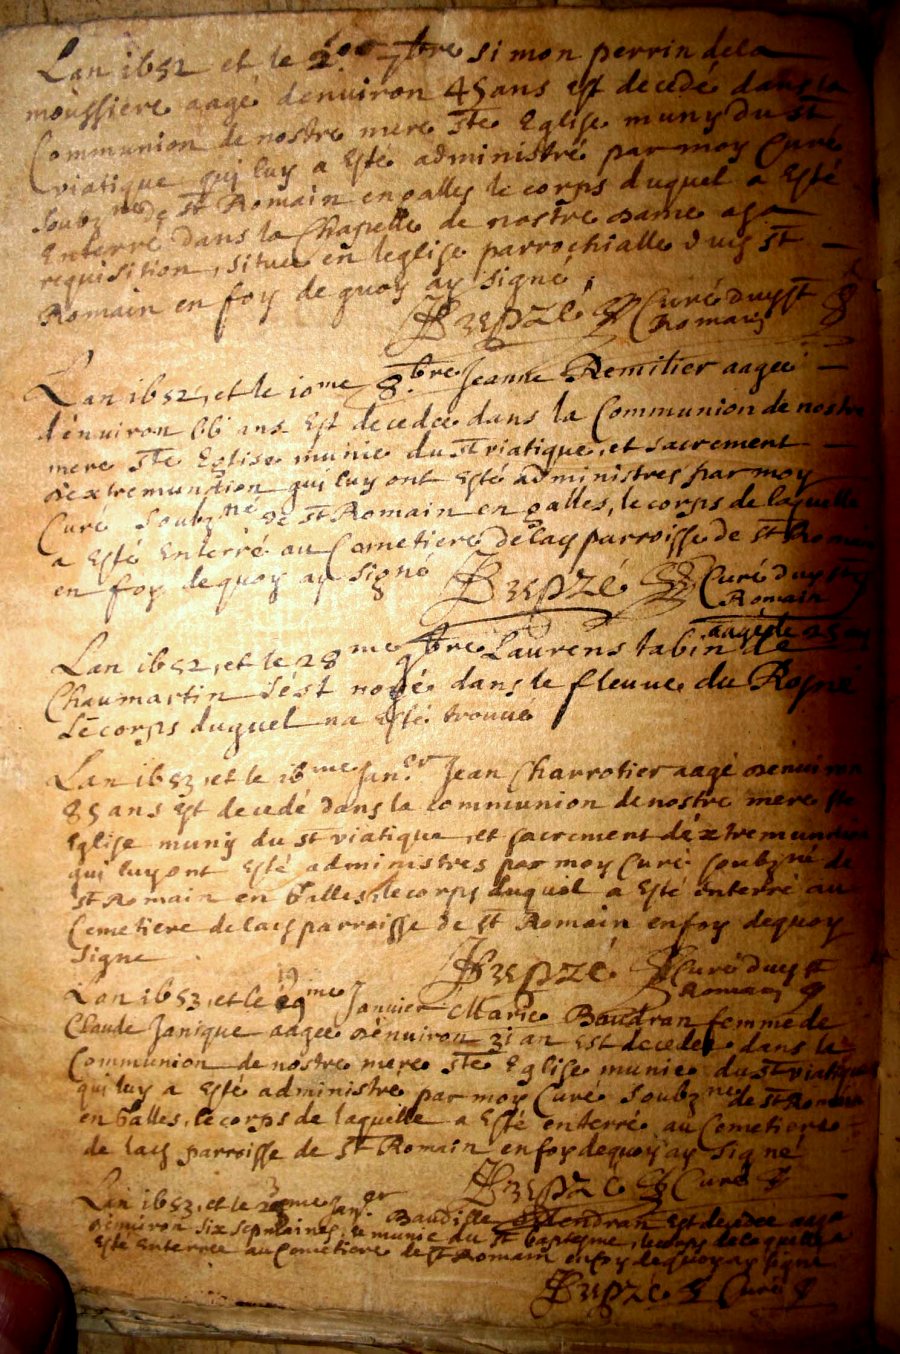 Lan 1652 et le 7bre simon perrin dela
moussiere aagé denuiron 45 ans est decedé dans la
Communion de nostre mere ste Eglise muny du st
viatique qui luy a Esté administré par moy Curé
soubzne de st Romain en galles le corps duquel a Esté
Enterré dans la Chapelle de nostre dame asa
requisition, situee en leglise parrochialle duy st
Romain en foy de quoy ay signé
Curé duy st
Romain
Lan 1652, et le 10me 8.bre Jeanne Remilier aagee
d'enuiron 66 ans Est decedee dans la Communion de nostre
mere ste Eglise munie du st viatique, et sacrement
dextremunction qui luy ont Esté administres par moy
Curé soubzne de st Romain en galles, le corps de laquelle
a Esté Enterré au Cemetiere de lad parroisse de st Romain
en foy de quoy ay signé
Curé duy st
Romain
aagé de 25 ans
Lan 1652, et le 28me 9bre Laurens tabin de
Chaumartin s'est noyé dans le fleuue du Rosne
Le corps duquel na Esté trouué
Lan 1653, et le 16me Janer Jean Charrotier aagé denuiron
85 ans Est decedé dans la communion de nostre mere ste
Eglise muny du st viatique, et sacrement déxtremunction
qui luy ont Esté administres par moy Curé soubzné de
st Romain en Galles, le corps duquel a Esté enterré au
Cemetiere de lad parroisse de st Romain en foy dequoy
signe
Curé duy st
Romain
Lan 1653, et le 19me Janvier Marie Baudran femme de
Claude Janique aagee denuiron 31 an Est decedee dans la
Communion de nostre mere ste Eglise munie du st viatique
qui luy a Esté administre par moy Curé soubzne de st Romain
en Galles, le corps de laquelle a Esté enterré au Cemetiere
de lad parroisse de st Romain en foy dequoy ay signé
Curé
Lan 1653, et le Janer Baudille Est decedee aagee
denuiron six sepmaines, munie du st baptesme, le corps de laquelle a
Esté Enterree au Cemetiere de st Romain en foy de quoy ay signe
Curé